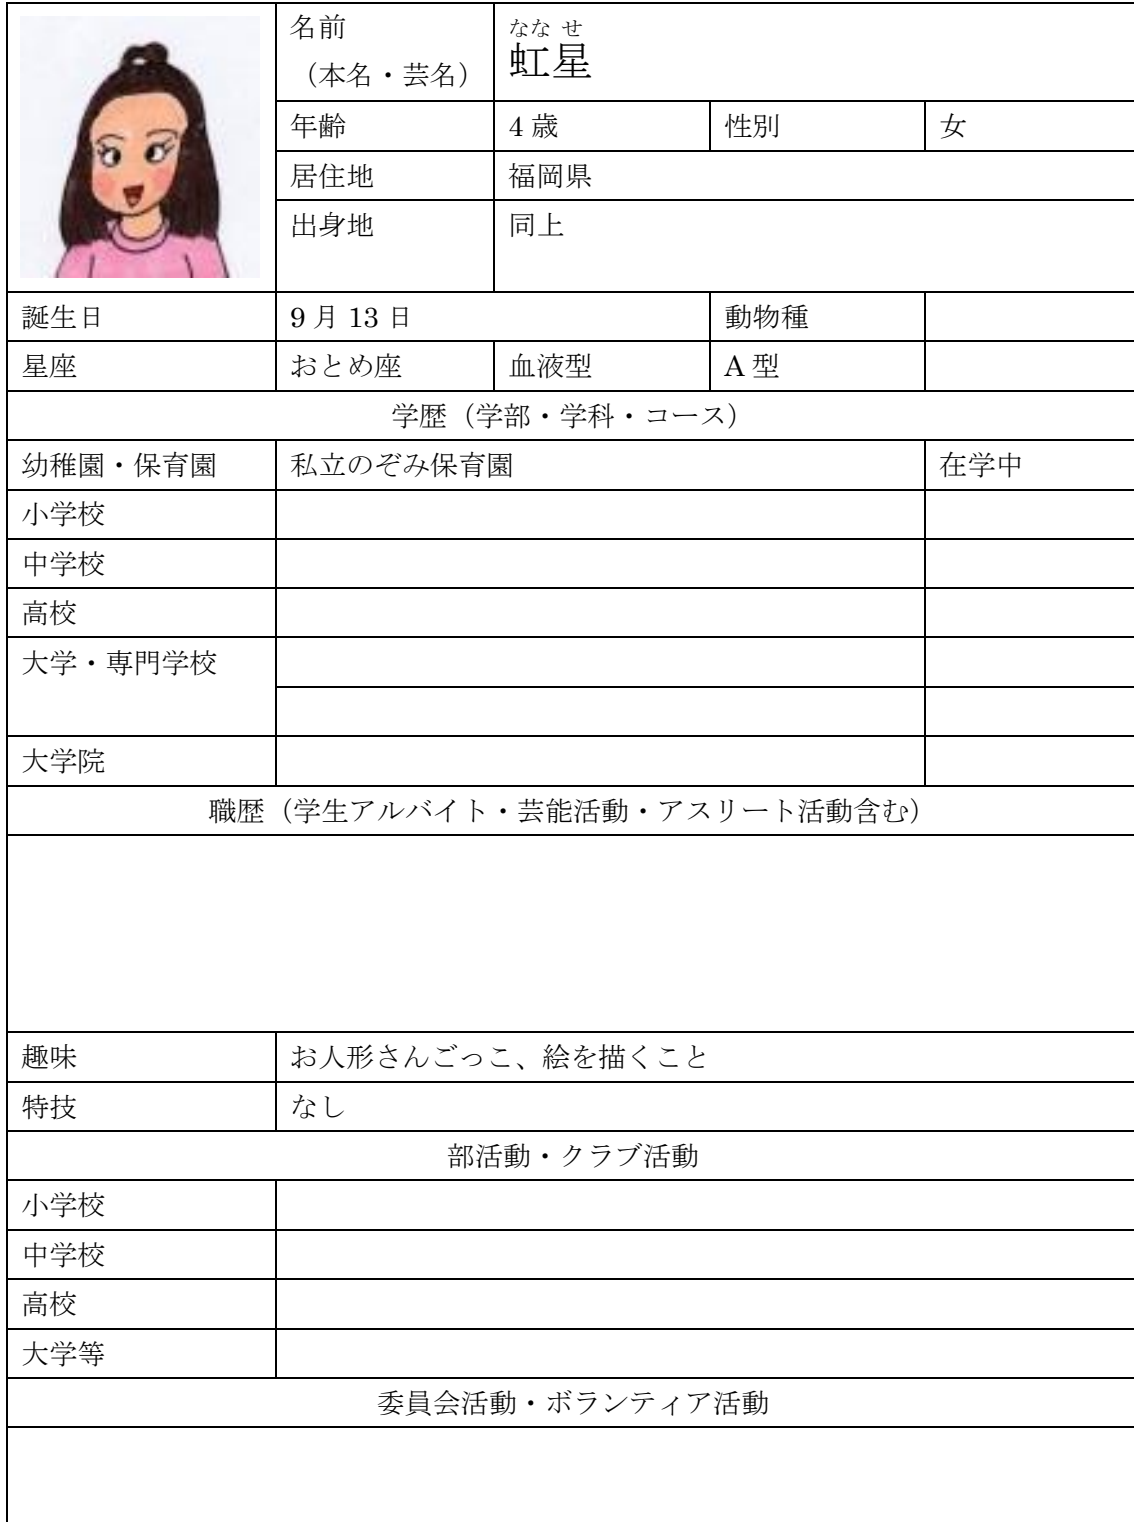 名前
（本名・芸名）
なな せ
虹星
年齢 4歳 性別 女
居住地 福岡県
出身地 同上
誕生日 9月13日 動物種
星座 おとめ座 血液型 A型
学歴（学部・学科・コース）
幼稚園・保育園 私立のぞみ保育園 在学中
小学校
中学校
高校
大学・専門学校
大学院
職歴（学生アルバイト・芸能活動・アスリート活動含む）
趣味 お人形さんごっこ、絵を描くこと
特技 なし
部活動・クラブ活動
小学校
中学校
高校
大学等
委員会活動・ボランティア活動